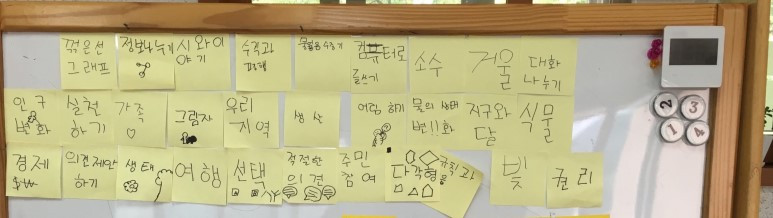 꺾은선 그래프
정보나누기
시와 이야기
수직과 평행
물발음수증기
컴퓨터로 글쓰기
소수
거울
대화 나누기
인구 변화
실천 하기
가족
그림자
우리 지역
생산
어림 하기
물의 상태 변!!화
지구와 달
식물
2
3
1
4
경제
의견제안 하기
생태
여행
선택
적절한 의견
주민 참여
다각형
규칙과
빛
권리